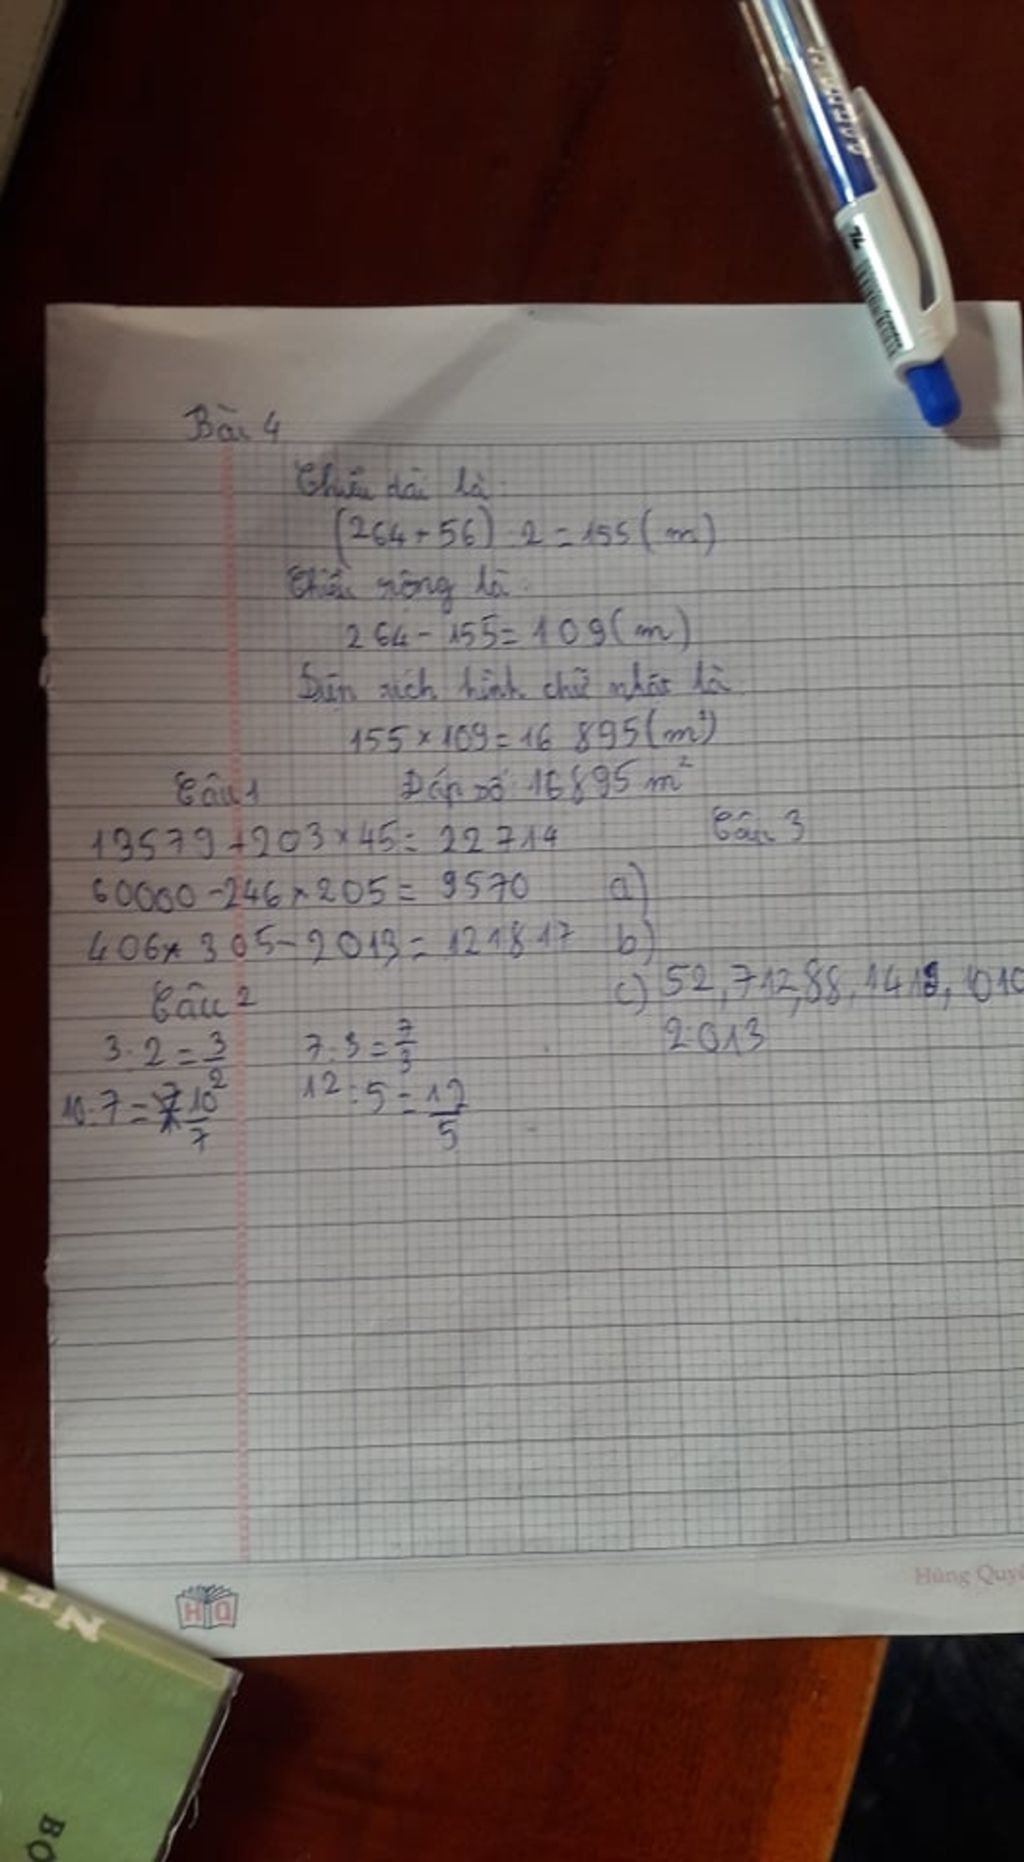 Bài 4
Chiều dài là
(264+56) 2=155(m)
Chiều rộng là
264-155=109(m)
Diện tích hình chữ nhật là
155×109=16 895(m²)
Câu 1
Đáp số 16895 m²
13579+203×45=22714
Câu 3
60000-246×205=9570
a)
406×305-2013=121817
b)
Câu 2
c) 52,712,88,1418,1010
2013
3:2=3/2
7:3=7/3
10:7=10/7
12:5=12/5
HQ
BỘ